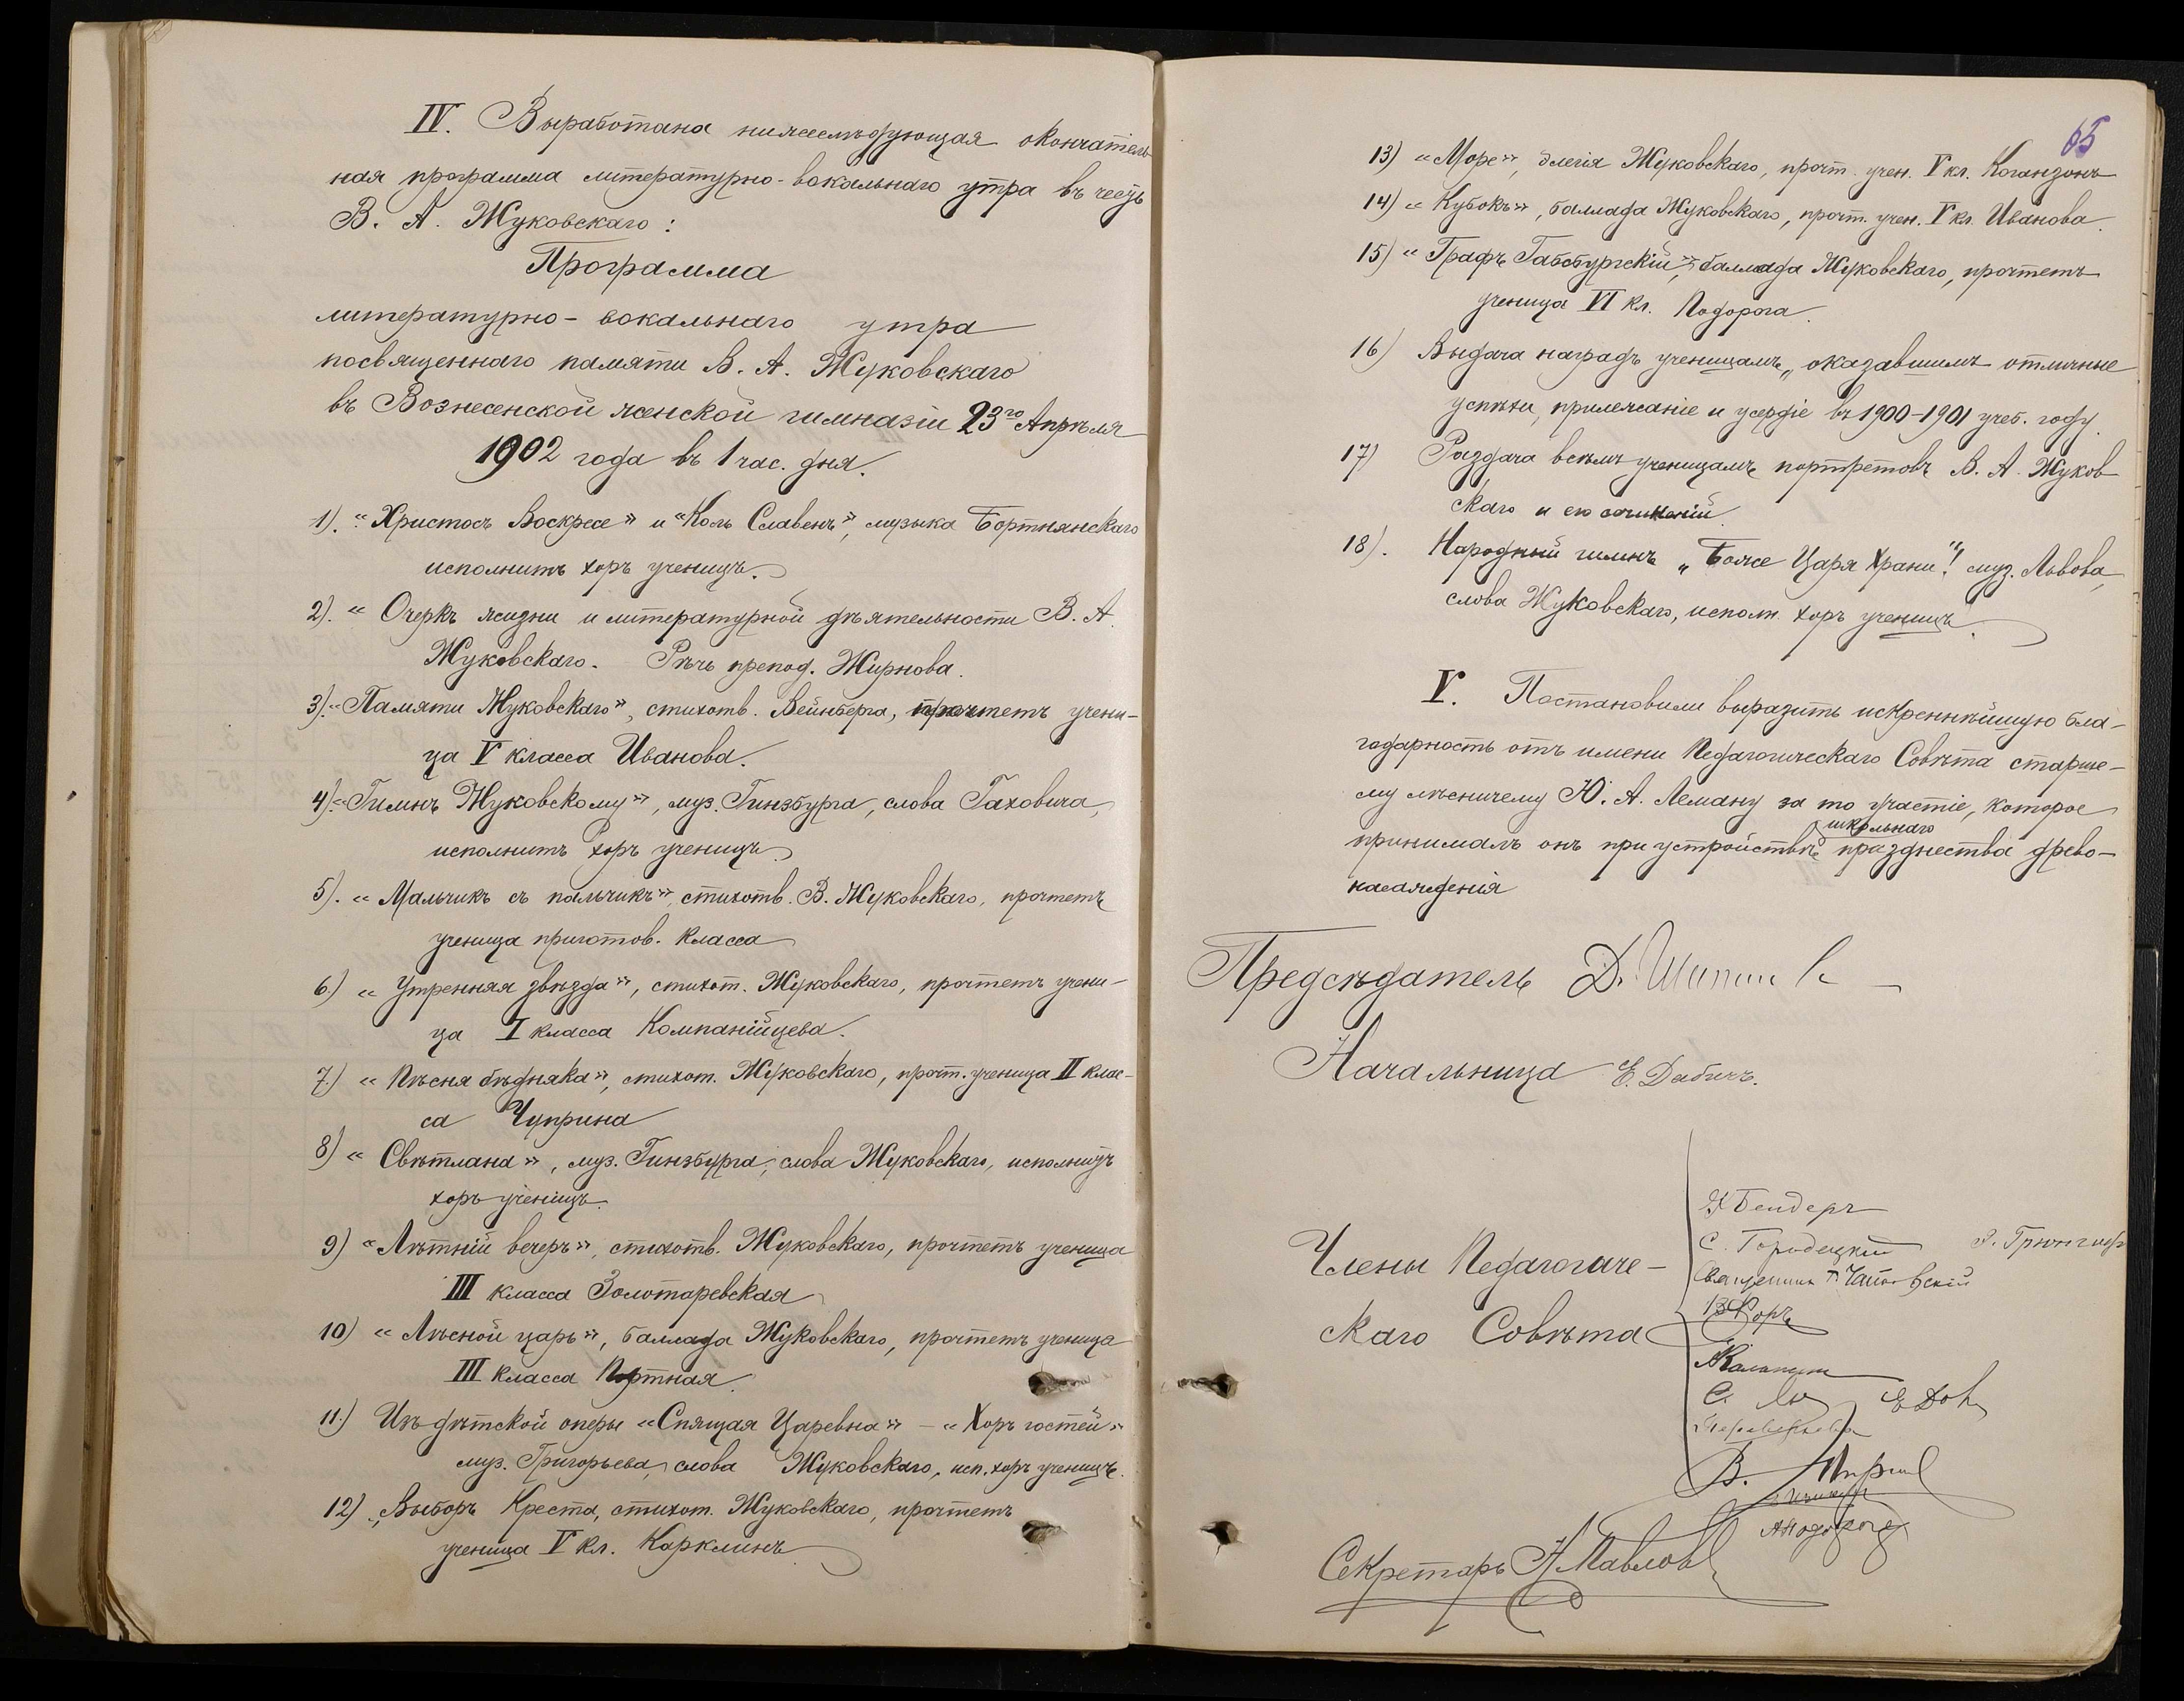 IV. Выработана нижеслѣдующая окончатель
ная программа литературно-вокальнаго утра въ честь
В. А. Жуковскаго:
Программа
литературно-вокальнаго утра
посвященнаго памяти В. А. Жуковскаго
въ Вознесенской женской гимназіи 23го Апрѣля
1902 года въ 1 час. дня.
1). "Христосъ Воскресе" и "Коль Славенъ", музыка Бортнянскаго
исполнитъ хоръ ученицъ.
2). "Очеркъ жизни и литературной дѣятельности В. А.
Жуковскаго. Рѣчь препод. Жирнова.
3). "Памяти Жуковскаго", стихотв. Вейнберга, прочтетъ учени-
ца V класса Иванова.
4). "Гимнъ Жуковскому", муз. Гинзбурга, слова Гаховича,
исполнитъ хоръ ученицъ
5). "Мальчикъ съ пальчикъ", стихотв. В. Жуковскаго, прочтетъ
ученица приготов. класса
6.) "Утренняя звѣзда", стихот. Жуковскаго, прочтетъ учени-
ца I класса Компанійцева.
7.) "Пѣсня бѣдняка", стихот. Жуковскаго, прочт. ученица II клас-
са Чуприна
8) "Свѣтлана", муз. Гинзбурга, слова Жуковскаго, исполнитъ
хоръ ученицъ.
9) "Лѣтній вечеръ", стихотв. Жуковскаго, прочтетъ ученица
III класса Золотаревская
10) "Лѣсной царь", баллада Жуковскаго, прочтетъ ученица
III класса Портная.
11.) Изъ дѣтской оперы "Спящая Царевна" – "Хоръ гостей"
муз. Григорьева, слова Жуковскаго, исп. хоръ ученицъ.
12) "Выборъ Креста, стихот. Жуковскаго, прочтетъ
ученица V кл. Карклинъ
65
13) "Море", элегія Жуковскаго, прочт. учен. V кл. Коганзонъ
14) "Кубокъ", баллада Жуковскаго, прочт. учен. V кл. Иванова.
15) "Графъ Габсбургскій", баллада Жуковскаго, прочтетъ
ученица VI кл. Подорога.
16) Выдача наградъ ученицамъ, оказавшимъ отличные
успѣхи, прилежаніе и усердіе въ 1900-1901 учеб. году.
17) Раздача всѣмъ ученицамъ портретовъ В. А. Жуков
скаго и его сочиненій.
18). Народный гимнъ "Боже Царя Храни"! муз. Львова,
слова Жуковскаго, исполн. хоръ ученицъ.
V. Постановили выразить искреннѣйшую бла-
годарность отъ имени Педагогическаго Совѣта старше-
му лѣсничему Ю. А. Леману за то участіе, которое
принималъ онъ при устройствѣ школьнаго празднества древо-
насажденія
Предсѣдатель Д.
Начальница Е. Дабичъ.
Члены Педагогиче-
скаго Совѣта
Бендеръ
С. Городецкій
Священникъ
В.
Секретарь Н. Павловъ